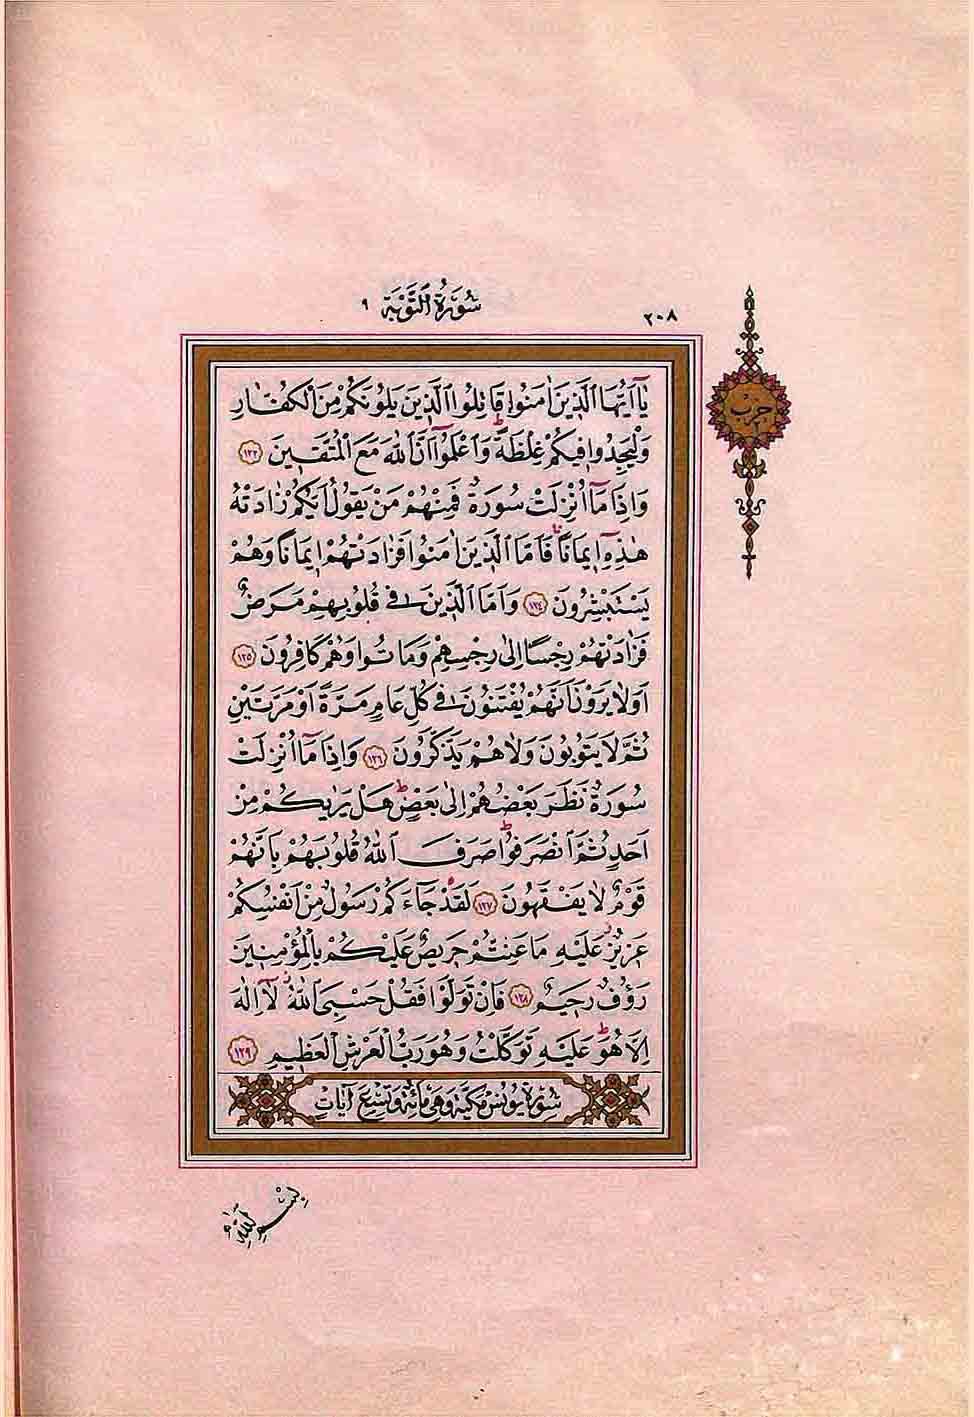 ٢٠٨
سُورَةُ التَّوْبَةِ ٩
حزب
يَٓا اَيُّهَا الَّذ۪ينَ اٰمَنُوا قَاتِلُوا الَّذ۪ينَ يَلُونَكُمْ مِنَ الْكُفَّارِ
وَلْيَجِدُوا ف۪يكُمْ غِلْظَةًۜ وَاعْلَمُٓوا اَنَّ اللّٰهَ مَعَ الْمُتَّق۪ينَ ﴿١٢٣﴾
وَاِذَا مَٓا اُنْزِلَتْ سُورَةٌ فَمِنْهُمْ مَنْ يَقُولُ اَيُّكُمْ زَادَتْهُ
هٰذِه۪ٓ ا۪يمَاناًۚ فَاَمَّا الَّذ۪ينَ اٰمَنُوا فَزَادَتْهُمْ ا۪يمَاناً وَهُمْ
يَسْتَبْشِرُونَ ﴿١٢٤﴾ وَاَمَّا الَّذ۪ينَ ف۪ي قُلُوبِهِمْ مَرَضٌ
فَزَادَتْهُمْ رِجْساً اِلٰى رِجْسِهِمْ وَمَاتُوا وَهُمْ كَافِرُونَ ﴿١٢٥﴾
اَوَلَا يَرَوْنَ اَنَّهُمْ يُفْتَنُونَ ف۪ي كُلِّ عَامٍ مَرَّةً اَوْ مَرَّتَيْنِ
ثُمَّ لَا يَتُوبُونَ وَلَا هُمْ يَذَّكَّرُونَ ﴿١٢٦﴾ وَاِذَا مَٓا اُنْزِلَتْ
سُورَةٌ نَظَرَ بَعْضُهُمْ اِلٰى بَعْضٍۜ هَلْ يَرٰيكُمْ مِنْ
اَحَدٍ ثُمَّ انْصَرَفُواۜ صَرَفَ اللّٰهُ قُلُوبَهُمْ بِاَنَّهُمْ
قَوْمٌ لَا يَفْقَهُونَ ﴿١٢٧﴾ لَقَدْ جَٓاءَكُمْ رَسُولٌ مِنْ اَنْفُسِكُمْ
عَز۪يزٌ عَلَيْهِ مَا عَنِتُّمْ حَر۪يصٌ عَلَيْكُمْ بِالْمُؤْمِن۪ينَ
رَؤُ۫فٌ رَح۪يمٌ ﴿١٢٨﴾ فَاِنْ تَوَلَّوْا فَقُلْ حَسْبِيَ اللّٰهُۘ لَٓا اِلٰهَ
اِلَّا هُوَۜ عَلَيْهِ تَوَكَّلْتُ وَهُوَ رَبُّ الْعَرْشِ الْعَظ۪يمِ ﴿١٢٩﴾
سُورَةُ يُونُسَ مَكِّيَّةٌ وَهِيَ مِائَةٌ وَتِسْعُ اٰيَاتٍ
بِسْمِ اللّٰهِ